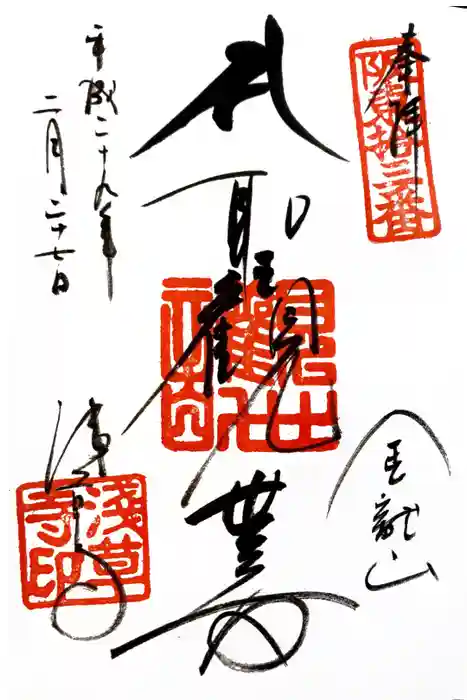 奉拝
阪東拾三番
金龍山
聖観世音
平成二十九年
二月二十七日
浅草寺
淺草寺印